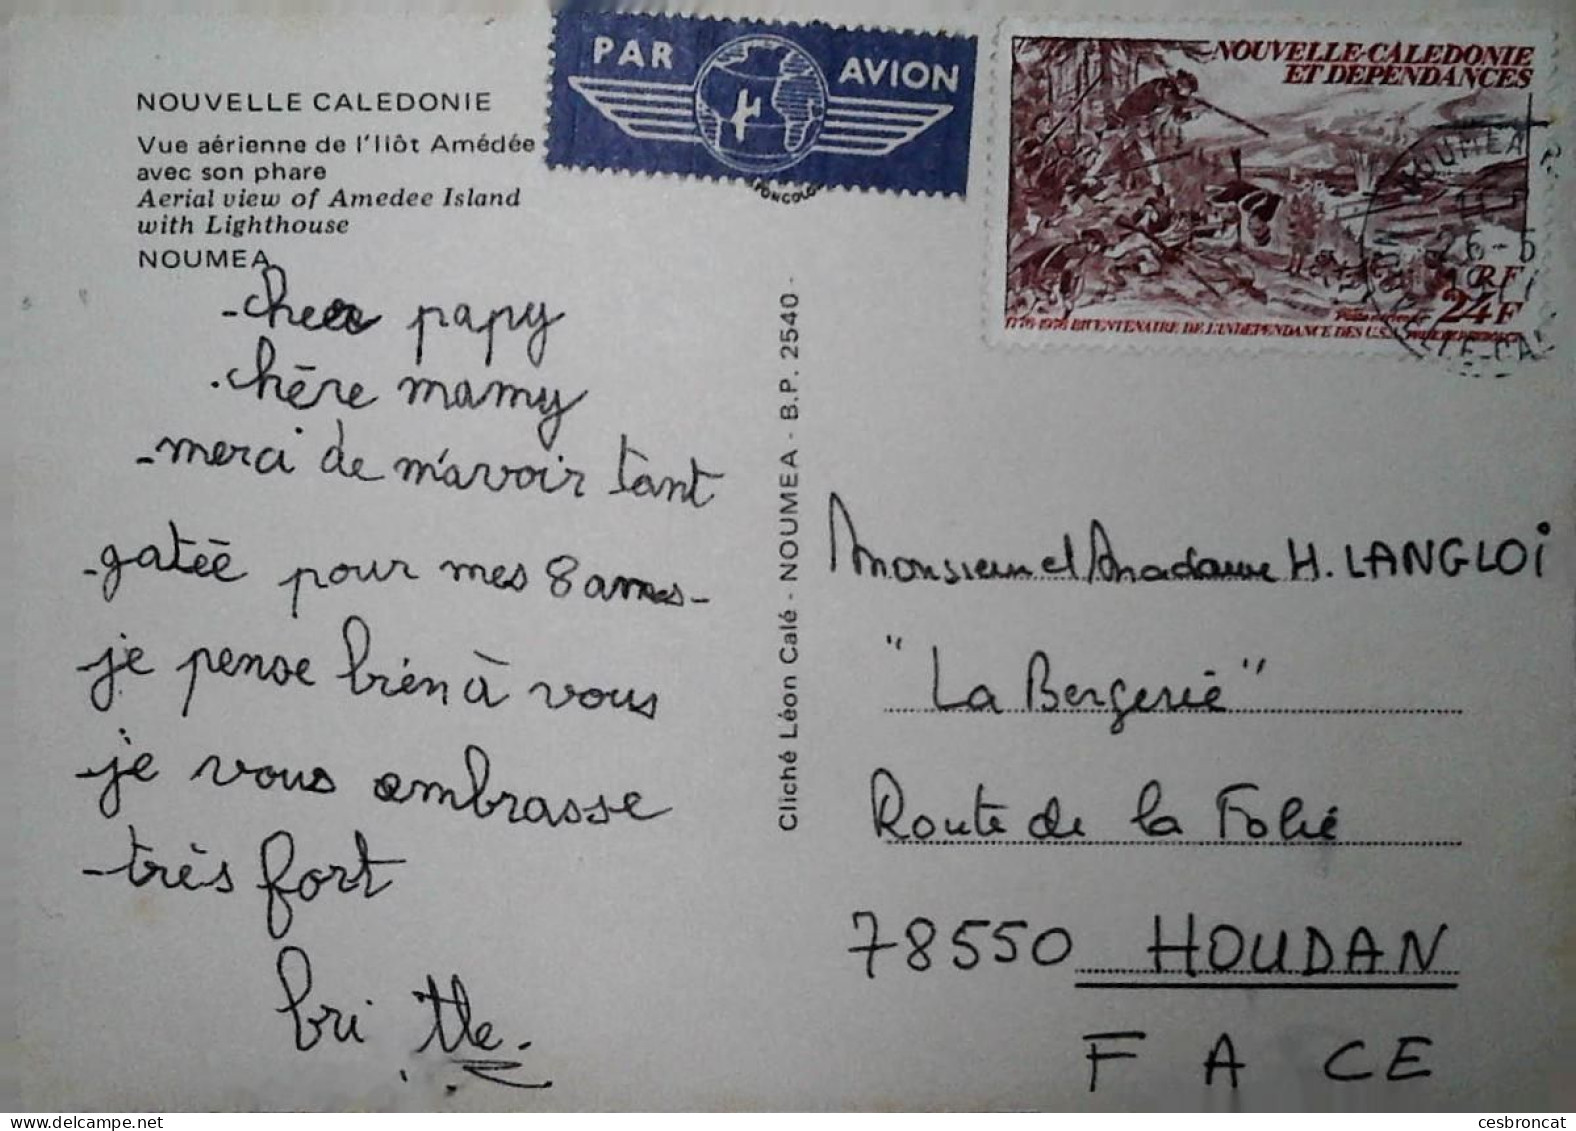 NOUVELLE CALEDONIE
Vue aérienne de l'Ilôt Amédée
avec son phare
Aerial view of Amedee Island
with Lighthouse
NOUMEA
PAR AVION
NOUVELLE-CALEDONIE
ET DEPENDANCES
RF
24F
1776-1976 BICENTENAIRE DE L'INDEPENDANCE DES U.S.A.
NOUMEA R.
26-5
-cher papy
-chère mamy
-merci de m'avoir tant
-gatéé pour mes 8 ans-
-je pense bién à vous
-je vous ambrasse
-très fort
bri tte.
Cliché Léon Calé - NOUMEA - B.P. 2540 -
Monsieur et Madame H. LANGLOi
"La Bergerie"
Route de la Folie
78550 HOUDAN
F A CE
cesbroncat